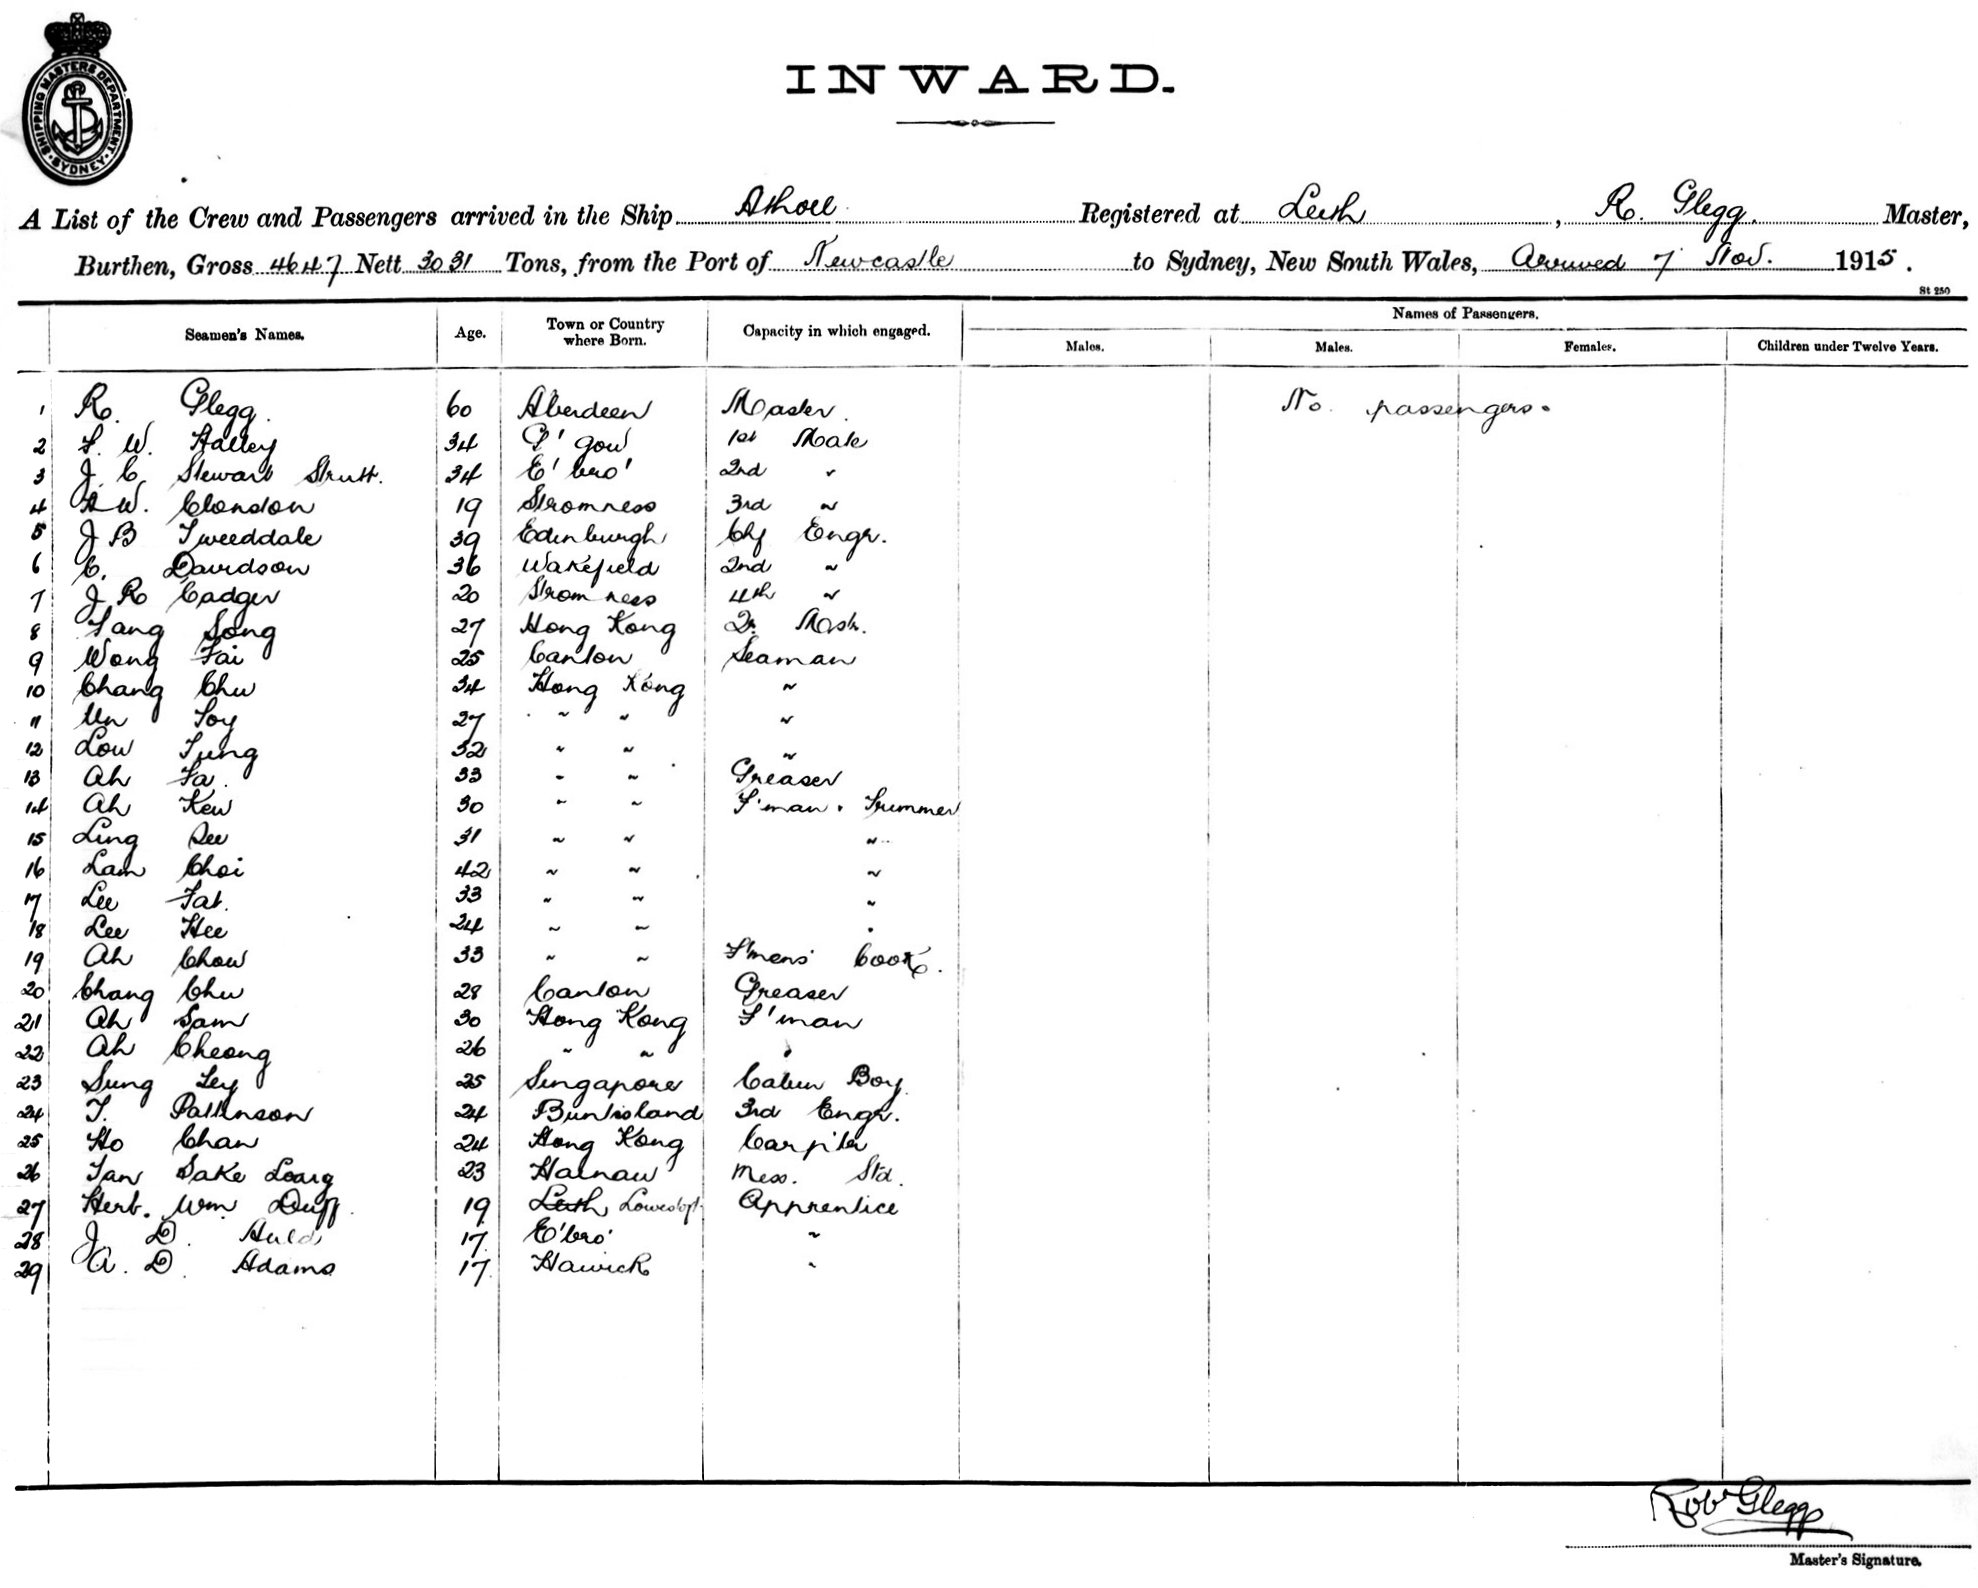 SHIPPING MASTERS DEPARTMENT. SYDNEY.
INWARD.
A List of the Crew and Passengers arrived in the Ship Atholl Registered at Leith, R. Glegg. Master,
Burthen, Gross 4647 Nett 3031 Tons, from the Port of Newcastle to Sydney, New South Wales, Arrived 7 Nov. 1915.
St 250
Seamen's Names. Age. Town or Country where Born. Capacity in which engaged. Names of Passengers.
Males. Males. Females. Children under Twelve Years.
1 R. Glegg. 60 Aberdeen Master. No passengers.
2 W. Halley 34 G'gow 1st Mate
3 J. C. Stewart Strutt. 34 E'bro' 2nd "
4 W. Clouston 19 Stromness 3rd "
5 J B Tweeddale 39 Edinburgh Chf Engr.
6 C. Davidson 36 Wakefield 2nd "
7 J R Cadger 20 Stromness 4th "
8 Tang Song 27 Hong Kong Qr. Mastr.
9 Wong Fai 25 Canton Seaman
10 Chang Chu 34 Hong Kong "
11 Un Toy 27 " " "
12 Low Tung 32 " " "
13 Ah Fa. 33 " " Greaser
14 Ah Kew 30 " " F'man. Trimmer
15 Ling See 31 " " "
16 Lam Choi 42 " " "
17 Lee Fat. 33 " " "
18 Lee Hee 24 " " "
19 Ah Chow 33 " " F'mens' Cook.
20 Chang Chu 28 Canton Greaser
21 Ah Sam 30 Hong Kong F'man
22 Ah Cheong 26 " " "
23 Sung Ley 25 Singapore Cabin Boy
24 T. Pattinson 24 Burntisland 3rd Engr.
25 Ho Chan 24 Hong Kong Carp'ter
26 Tan Sake Loang 23 Hainau Mess. Std.
27 Herb. Wm Duff. 19 Leith Lowestoft. Apprentice
28 J. D. Auld 17 E'bro' "
29 A. D. Adams 17 Hawick "
Robt Glegg
Master's Signature.